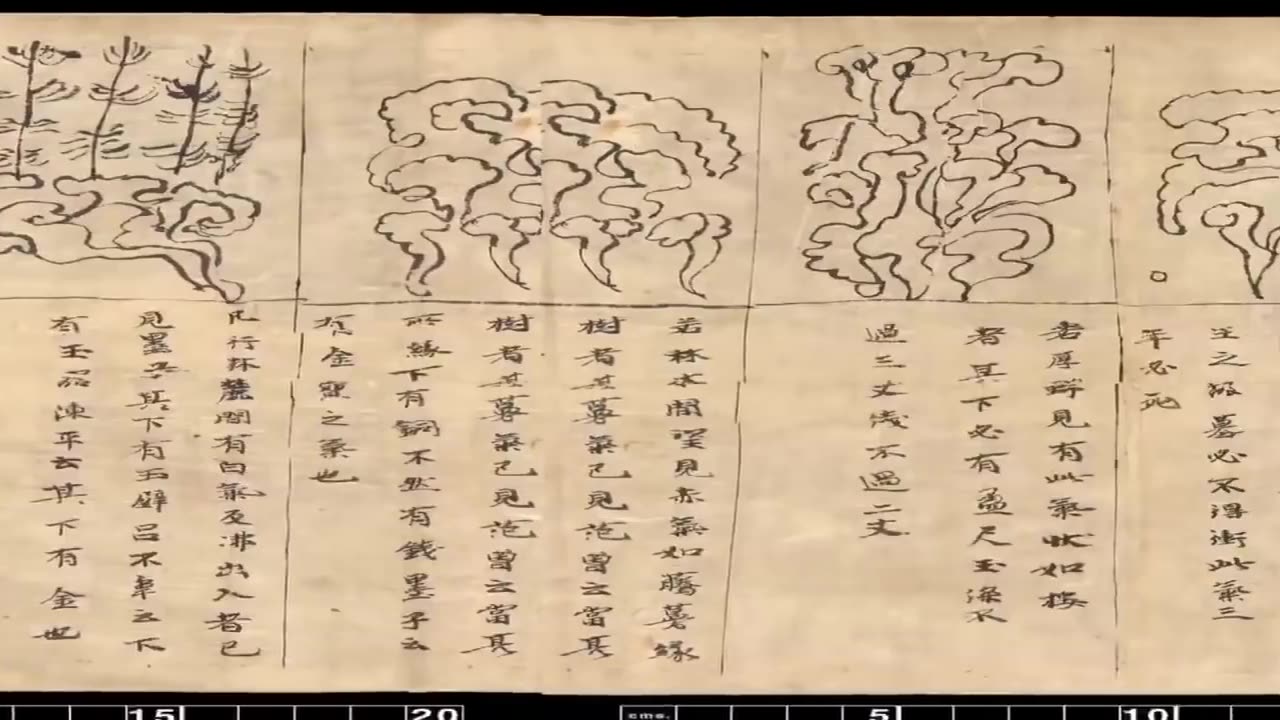 王之墓必不得衝此氣三
年必死
若厚野見有此氣狀如樓
者其下必有盈尺玉深不
過三丈淺不過二丈
若林木間望見赤氣如騰蔓緣
樹者其蔓氣已見范曾云當其
樹者其蔓氣已見范曾云當其
所緣下有銅不然有錢墨子云
有金寶之氣也
凡行林麓間有白氣及沸出入者已
見墨子其下有玉璧呂不韋云下
有玉陳平云其下有金也
15 20
cms. 5 10